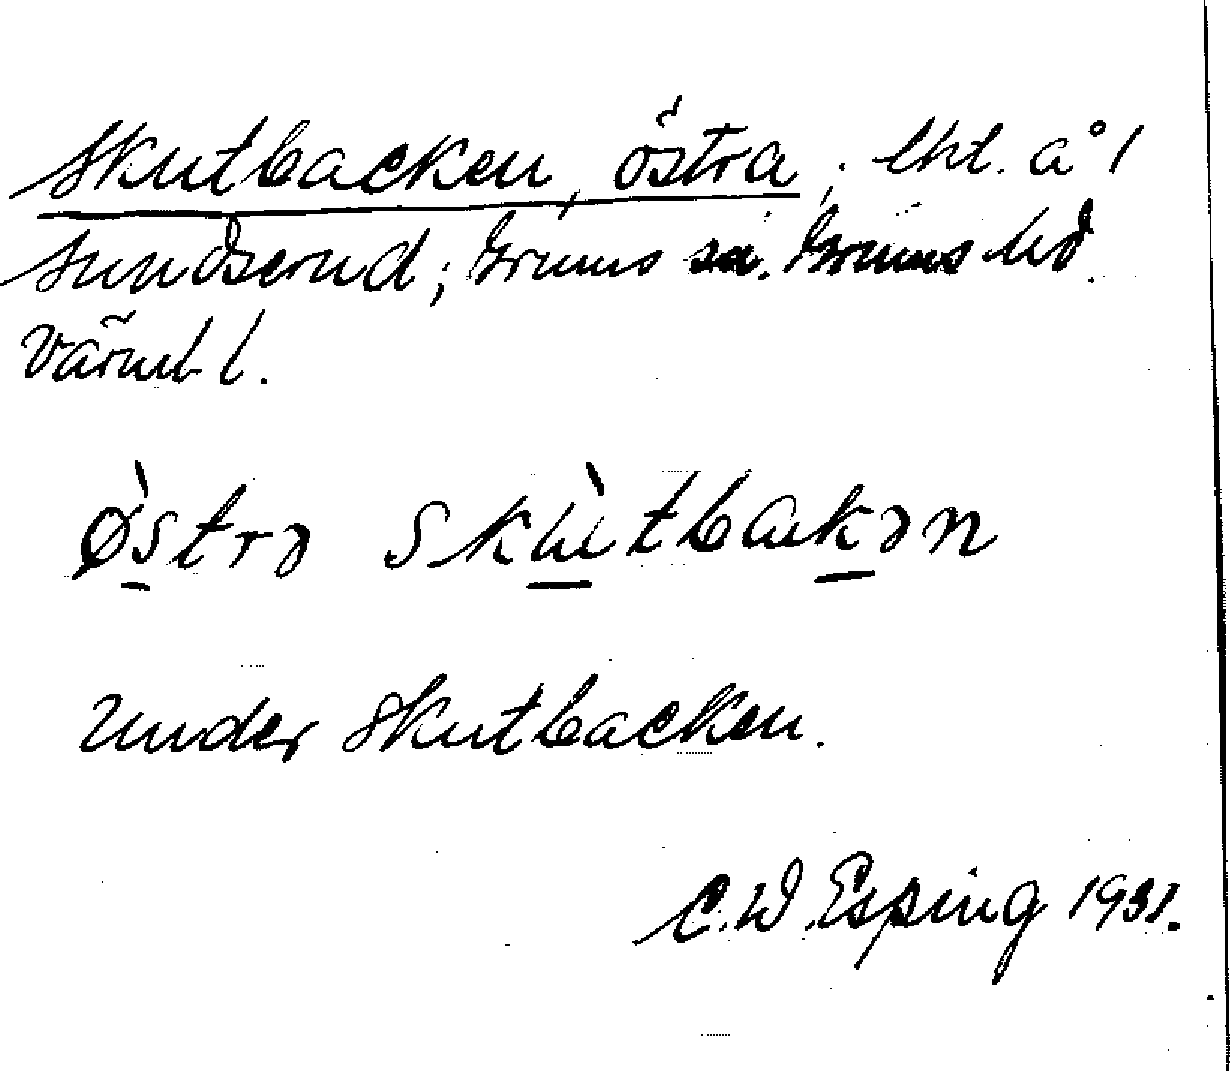 Skutbacken, östra; lht. å 1
Sundserud; Grums sn. Grums hd.
Värml l.
Østrə skutbakən
Under Skutbacken.
C. W. Esping 1931.